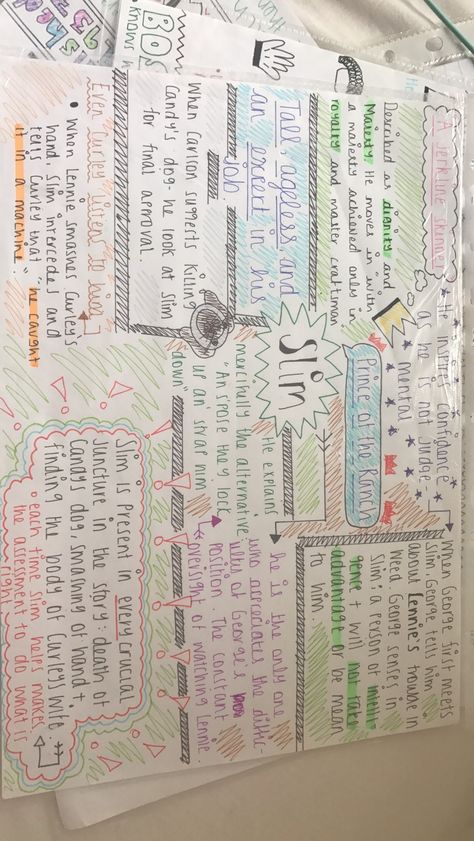 A jerkline skinner
Described as dignity and
Majesty. He moves in "with
a majesty achieved only in
royalty and master craftsman
Tall, ageless and
an expert in his
job.
When Carlson suggests killing
Candy's dog- he look at Slim
for final approval.
Even Curley listens to him
• When Lennie smashes Curley's
hand, Slim intercedes and
tells Curley that "he caught
it in a machine."
He inspires confidence
as he is not judge-
mental
Prince of the Ranch
Slim
He explains
mercifully the alternative
"An s'pose they lock
up an' strap him
down"
When George first meets
Slim, George tells him
about Lennie's trouble in
Weed. George senses in
Slim; a person of intelli
gence + will not take
advantage or be mean
to him.
he is the only one
who appreciates the diffic-
ulty of George's
position. The constant
oversight of watching Lennie.
Slim is present in every crucial
juncture in the story: death of
Candy's dog, smashing of hand +
finding the body of Curley's wife.
• each time Slim helps makes
the assessment to do what is
right
BOS